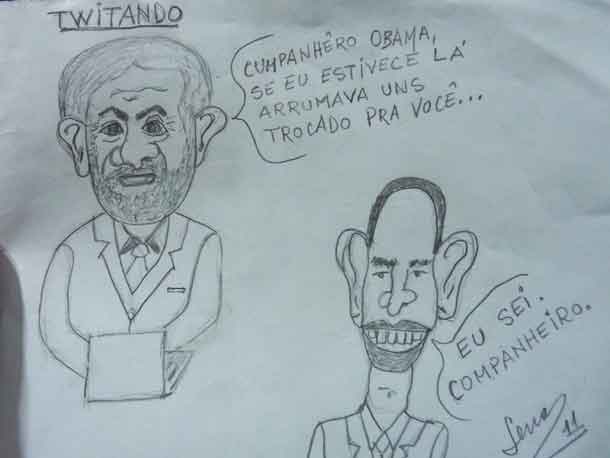 TWITANDO
CUMPANHÊRO OBAMA,
SE EU ESTIVECE LÁ
ARRUMAVA UNS
TROCADO PRA VOCÊ...
EU SEI.
COMPANHEIRO.
11